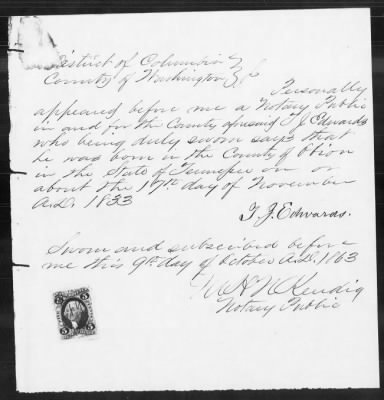 District of Columbia }
County of Washington } Personally
appeared before me a Notary Public
in and for the County aforesaid T. J. Edwards
who being duly sworn says that
he was born in the County of Obion
in the State of Tennessee on or
about the 17th day of November
A.D. 1833
T. J. Edwards.
Sworn and subscribed before
me this 9th day of October A.D. 1863
N Kendig
Notary Public
5 5